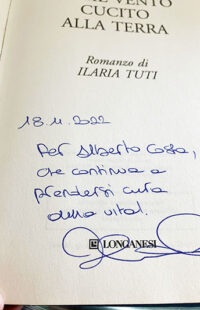 VENTO
CUCITO
ALLA TERRA
Romanzo di
ILARIA TUTI
18.11.2022
Per Alberto
che continua a
prendersi cura
della vita!
LONGANESI